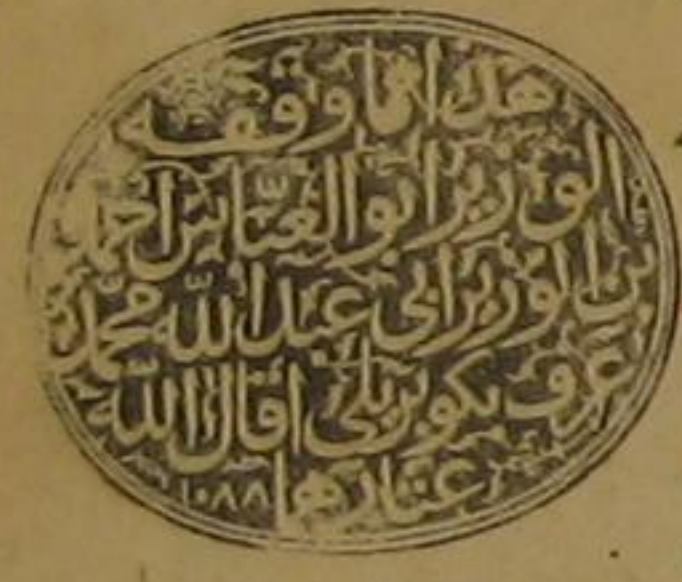 هذا مما وقفه
الوزير ابو العبّاس احمد
بن الوزير ابي عبد الله محمّد
عرف بكوبريلي اقال الله
عثارهما
١٠٨٨